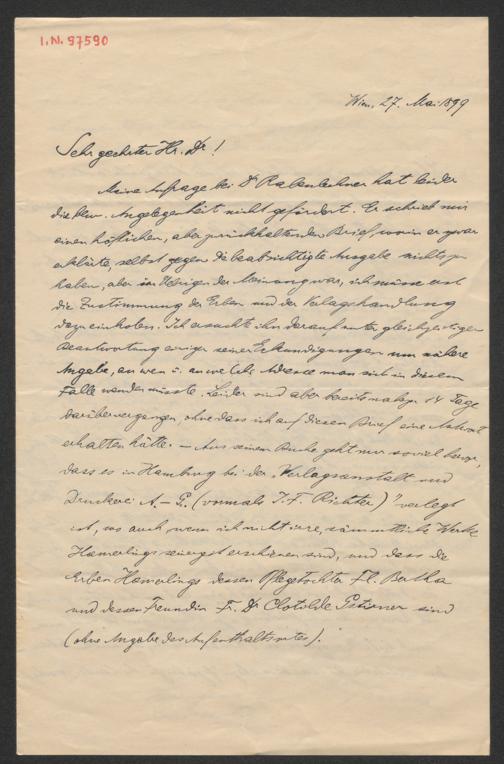 I.N. 97590
Wien, 27. Mai 1899
Sehr geehrter Hr. Dr!
Meine Anfrage bei Dr Rabenlechner hat leider
die bew. Angelegenheit nicht gefördert. Er schrieb mir
einen höflichen, aber zurückhaltenden Brief, worin er zwar
erklärte, selbst gegen die beabsichtigte Ausgabe nichts zu
haben, aber im Übrigen der Meinung war, ich müsse erst
die Zustimmung der Erben und der Verlagshandlung
dazu einholen. Ich ersuchte ihn darauf unter gleichzeitiger
Beantwortung einiger seiner Erkundigungen um nähere
Angabe, an wen u. an welche Adresse man sich in diesem
Falle wenden müsste. Leider sind aber bereits mehr als 14 Tage
darüber vergangen, ohne dass ich auf diesen Brief eine Antwort
erhalten hätte. – Aus seinem Buche geht nur soviel hervor,
dass es in Hamburg bei der „Verlagsanstalt und
Druckerei A.-G. (vormals J. F. Richter)" verlegt
ist, wo auch, wenn ich nicht irre, sämmtliche Werke
Hamerlings seinerzeit erschienen sind, und dass die
Erben Hamerlings dessen Pflegetochter Fl. Bertha
und dessen Freundin Fr. Clotilde Gstirner sind
(ohne Angabe des Aufenthaltsortes).